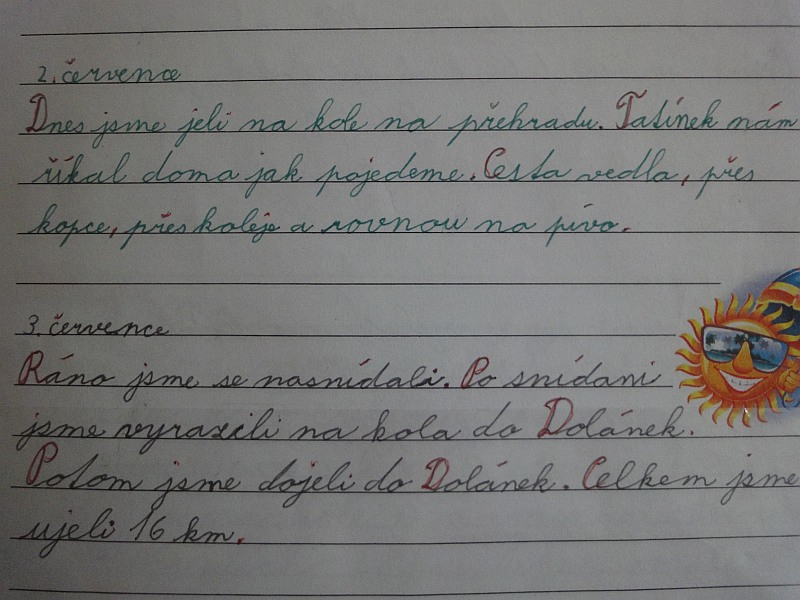 2. července
Dnes jsme jeli na kole na přehradu. Tatínek nám
říkal doma jak pojedeme. Cesta vedla, přes
kopce, přes koleje a rovnou na pivo.
3. července
Ráno jsme se nasnídali. Po snídani
jsme vyrazili na kola do Dolánek.
Potom jsme dojeli do Dolánek. Celkem jsme
ujeli 16 km.